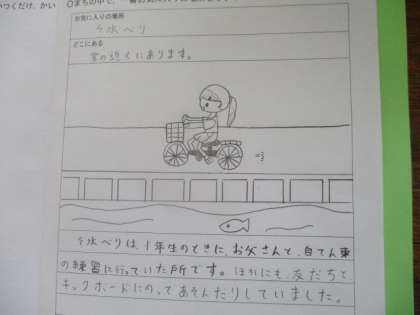 いつくだけ、かい
○まちの中で、一番のお気に入り
お気に入りの場所
水べり
どこにある
家の近くにあります。
水べりは、1年生のときに、お父さんと、自てん車
の練習に行っていた所です。ほかにも、友だちと
キックボードにのってあそんだりしていました。